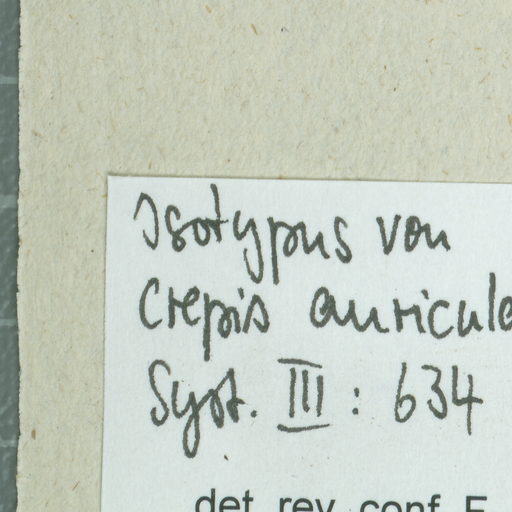 Isotypus von
Crepis auricula
Syst. III : 634
det. rev. conf. F.